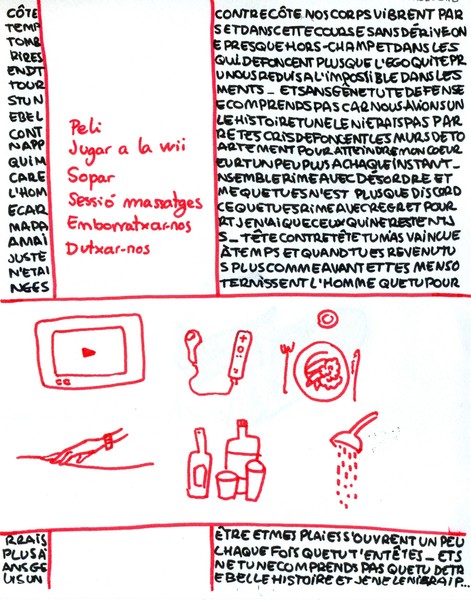 CÔTE
TEMP
TOMB
RIRES
ENDT
TOUR
STUN
EBEL
CONT
NAPP
QUIM
CARE
L'HOM
ECAR
MAPA
AMAI
JUSTE
N'ETAI
NGES
Peli
Jugar a la wii
Sopar
Sessió massatges
Emborratxar-nos
Dutxar-nos
CONTRECÔTE NOSCORPSVIBRENT PAR
SETDANSCETTECOURSESANSDÉRIVEON
EPRESQUEHORS-CHAMPETDANSLES
QUIDEFONCENTPLUSQUEL'EGOQUITEPR
UNOUSREDUISAL'IMPOSSIBLEDANSLES
MENTS_ETSANSGÊNETUTEDEFENSE
ECOMPRENDSPASCARNOUSAVIONSUN
LEHISTOIRETUNELENIERAISPAS PAR
RETESCRISDEFONCENTLESMURSDETO
ARTEMENTPOURATTEINDREMONCOEUR
EURTUNPEUPLUSACHAQUEINSTANT_
NSEMBLERIMEAVECDÉSORDRE ET
MEQUETUESN'ESTPLUSQUEDISCORD
CEQUETUESRIMEAVECREGRETPOUR
RTJEN'AIQUECEUXQUINERESTENTLS
S_TÊTECONTRETÊTETUMASVAINCUE
ÀTEMPSETQUANDTUESREVENUTU
SPLUSCOMMEAVANTETTESMENSO
TERNISSENTL'HOMMEQUETUPOUR
RRAIS
PLUSÀ
ANSGE
UISUN
ÊTREETMESPLAIESS'OUVRENTUNPEU
CHAQUEFOISQUETUT'ENTÊTES_ETS
NETUNECOMPRENDSPASQUETUDETR
EBELLEHISTOIREETJENELENIERAIP...